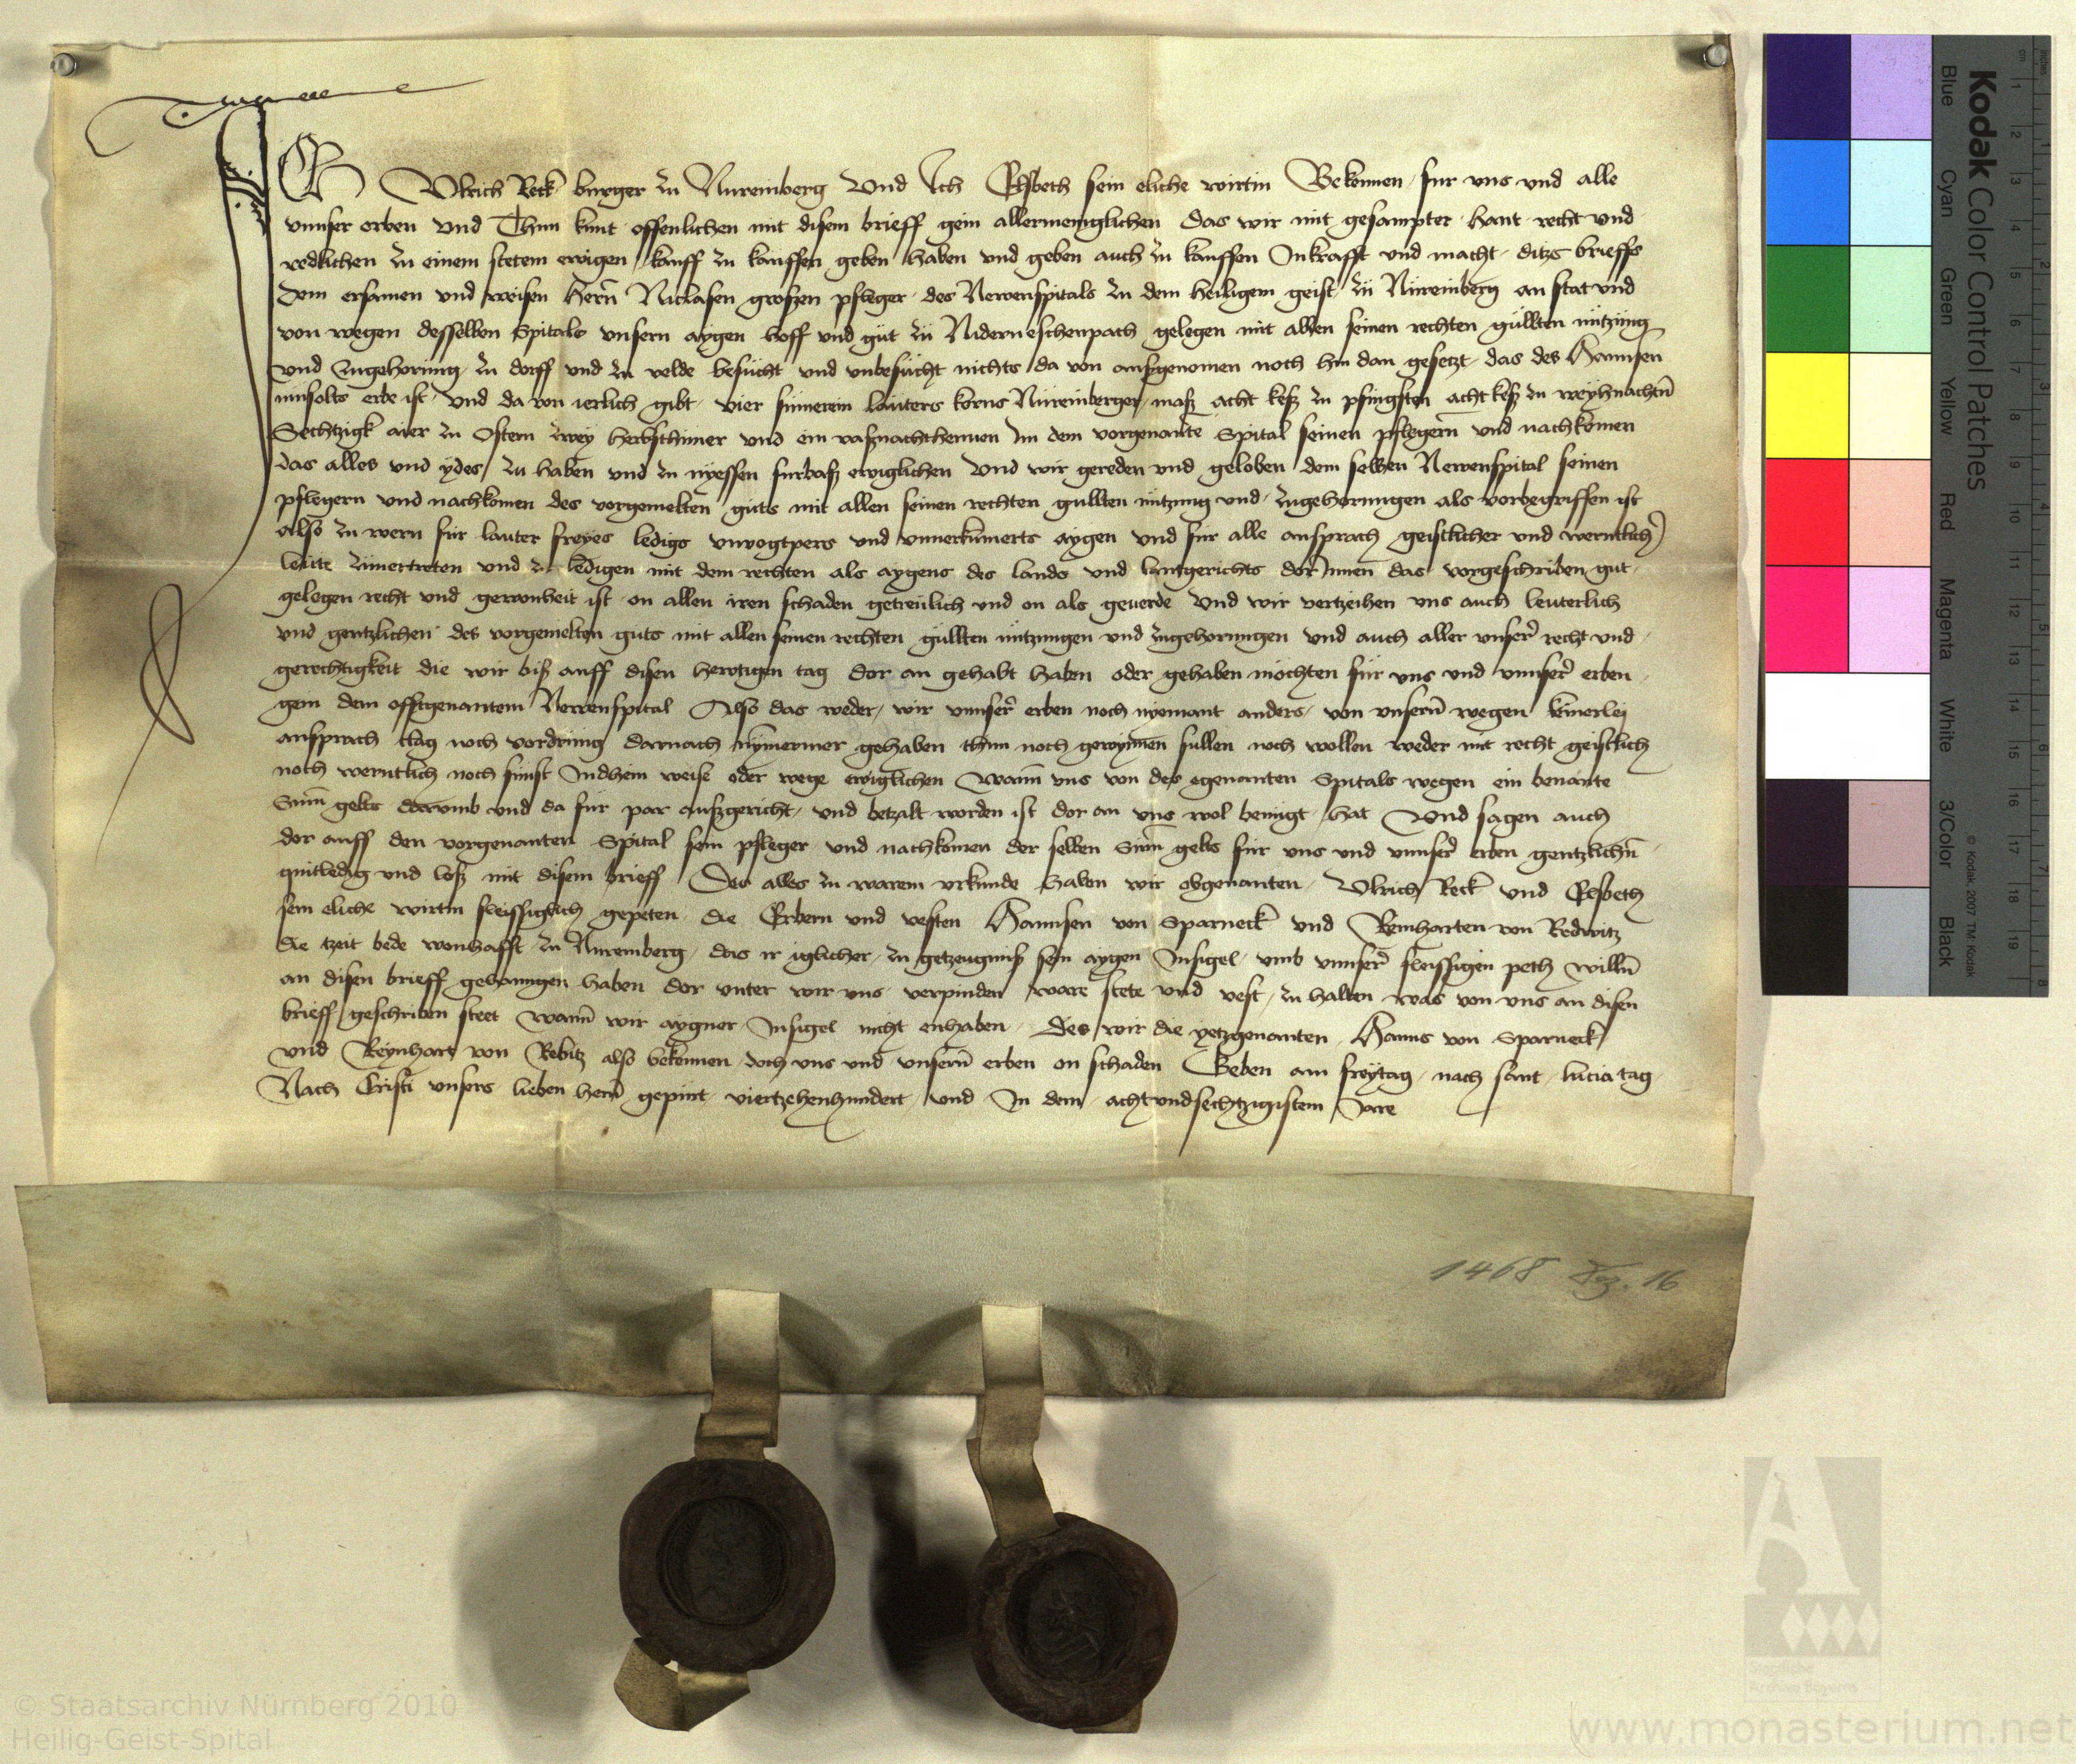 ICH Ulrich Reck burger zu Nuremberg Und Ich Elsbeth sein eliche wirtin Bekennen fur uns und alle
unnser erben und Thun kunt offenlichen mit disem brieff gein allermeniglichen das wir mit gesampter hant recht und
redlichen zu einem stetem ewigen kauff zu kauffen geben haben und geben auch zu kauffen In krafft und macht ditzs brieffs
dem ersamen und weisen Hern Niclasen groszen pfleger des Newenspitals zu dem heiligem geist zu Nuremberg an stat und
von wegen desselben Spitals unsern aygen hoff und gut zu Niderneschenpach gelegen mit allen seinen rechten gullten nutzung
und zugehorung zu dorff und zu velde besucht und unbesucht nichts da von auszgenomen noch hin dan gesetzt das des Hannsen
erbe ist und da von ierlich gibt vier summerein lauters korns Nuremberger masz acht kesz zu pfingsten acht kesz zu weyhnachtn
Sechtzigk aier zu Ostern zwey herbsthuner und ein vasznachthennen Im dem vorgenante Spital seinen pflegern und nachkomen
das alles und ydes zu haben und zu nyessen furbasz ewiglichen Und wir gereden und geloben dem selben Newenspital seinen
pflegern und nachkomen des vorgemelten guts mit allen seinen rechten gullten nutzung und zugehorungen als vorbegriffen ist
Also zu wern fur lauter freyes ledigs unvogtpers und unnerkumerts aygen und fur alle ansprach geistlicher und werntlich
leute zuuertreten und zu ledigen mit dem rechten als aygens des lands und lantgerichts dor Innen das vorgeschriben gut
gelegen recht und gewonheit ist on allen iren schaden getreulich und on als geuerde Und wir vertzeihen uns auch leuterlich
und gentzlichen des vorgemelten guts mit allen seinen rechten gullten nutzungen und zugehorungen und auch aller unser recht und
gerechtigkeit die wir bisz auff disen hewtigen tag dor an gehabt haben oder gehaben mochten fur uns und unnser erben
gein dem offtgenantem Newenspital Also das weder wir unnser erben noch nyemant anders von unsern wegen keinerley
ansprach clag noch vordrung darnach nymermer gehaben thun noch gewynnen sullen noch wollen weder mit recht geistlich
noch werntlich noch sunst Indhein weise oder wege ewiglichen Wann uns von des egenanten Spitals wegen ein benante
Sum gelts dorumb und da fur par auszgericht und betzalt worden ist dor an uns wol benugt hat Und sagen auch
dor auff den vorgenanten Spital sein pfleger und nachkomen der selben Sum gelts fur uns und unnser erben gentzlichn
quitledig und losz mit disem brieff Des alles zu warem urkunde haben wir obgenanten Ulrich Reck und Elsbeth
sein eliche wirtin fleissiglich gepeten die Erbern und vesten Hannsen von Sparneck und Reinharten von Redwitz
die tzeit bede wonhafft zu Nuremberg das ir iglicher zu getzeugnisz sein aygen Insigel umb unnser fleissigen peth willn
an disen brieff gehanngen haben dor unter wir uns verpinden ware stete und vest zu halten was von uns an disen
brieff geschriben steet Wann wir aygner Insigel nicht enhaben Des wir die yetzgenanten Hanns von Sparneck
und Reynhart von Rebitz also bekennen doch uns und unsern erben on schaden Geben am freytag nach sant lucia tag
Nach Cristi unsers lieben hern gepurt viertzehenhundert und In dem achtundsechtzigistem Jare
1468 Dz. 16
Kodak Color Control Patches
Blue Cyan Green Yellow Red Magenta White 3/Color Black
© Kodak, 2007 TM: Kodak
© Staatsarchiv Nürnberg 2010
Heilig-Geist-Spital
www.monasterium.net